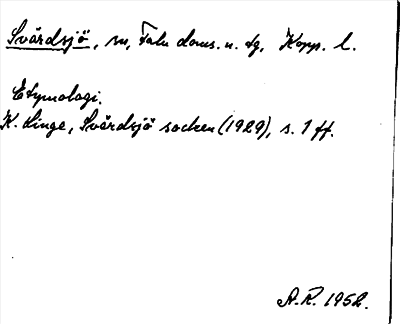 Svärdsjö, sn, Falu doms. u. tg, Kopp. l.
Etymologi.
K. Linge, Svärdsjö socken (1929), s. 1 ff.
A.R. 1952.